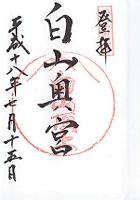 登拝
白山奥宮
平成十八年七月十五日